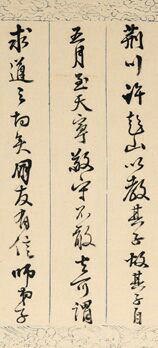 荊川許彭山以教其子故其子自
五月至天寧敬守不敢去可謂
求道之切矣朋友有信師弟子